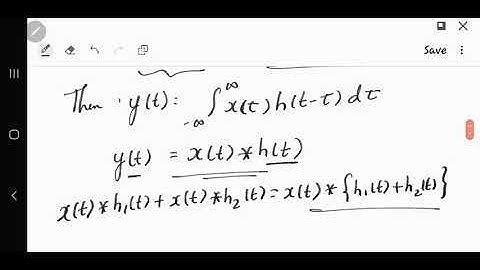 Save
Then y(t): ∫_{-∞}^{∞} x(τ) h(t-τ) dτ
y(t) = x(t) * h(t)
x(t) * h₁(t) + x(t) * h₂(t) = x(t) * {h₁(t) + h₂(t)}